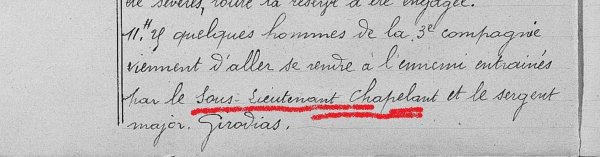 de sévères, toute la réserve a été engagée.
11.H 25 quelques hommes de la 3e compagnie
viennent d'aller se rendre à l'ennemi entrainés
par le Sous-Lieutenant Chapelant et le sergent
major. Girodias.